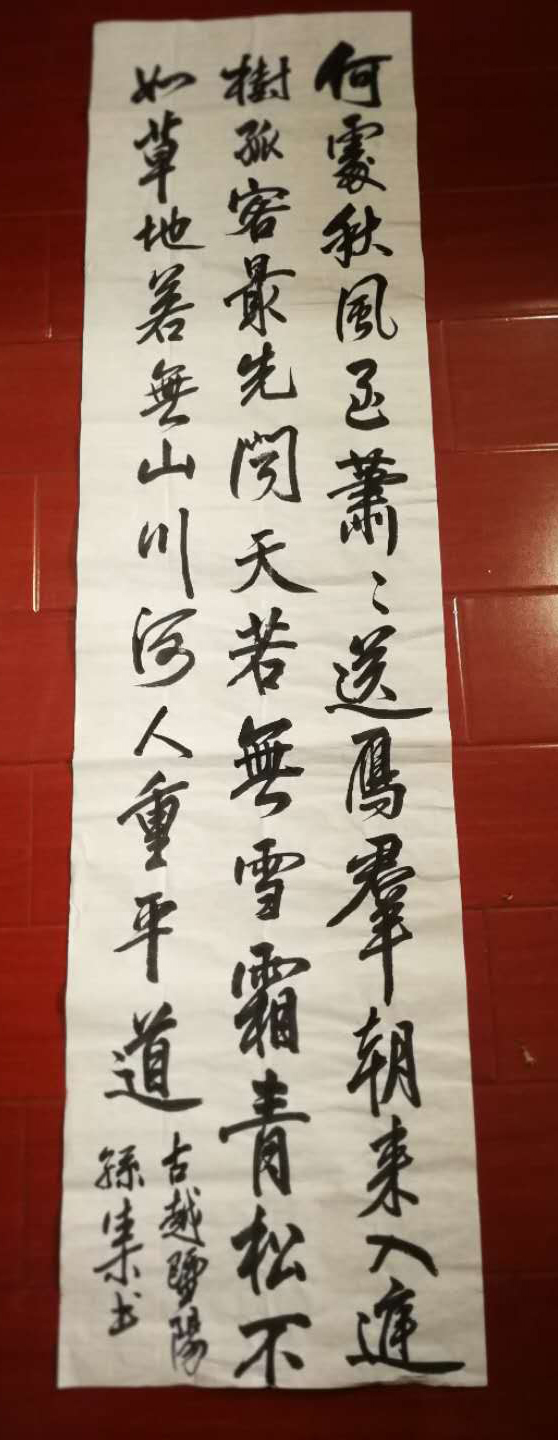 何處秋風至蕭〻送鴈羣朝来入庭
樹孤客最先聞天若無雪霜青松不
如草地若無山川何人重平道
古越暨陽
孫集书